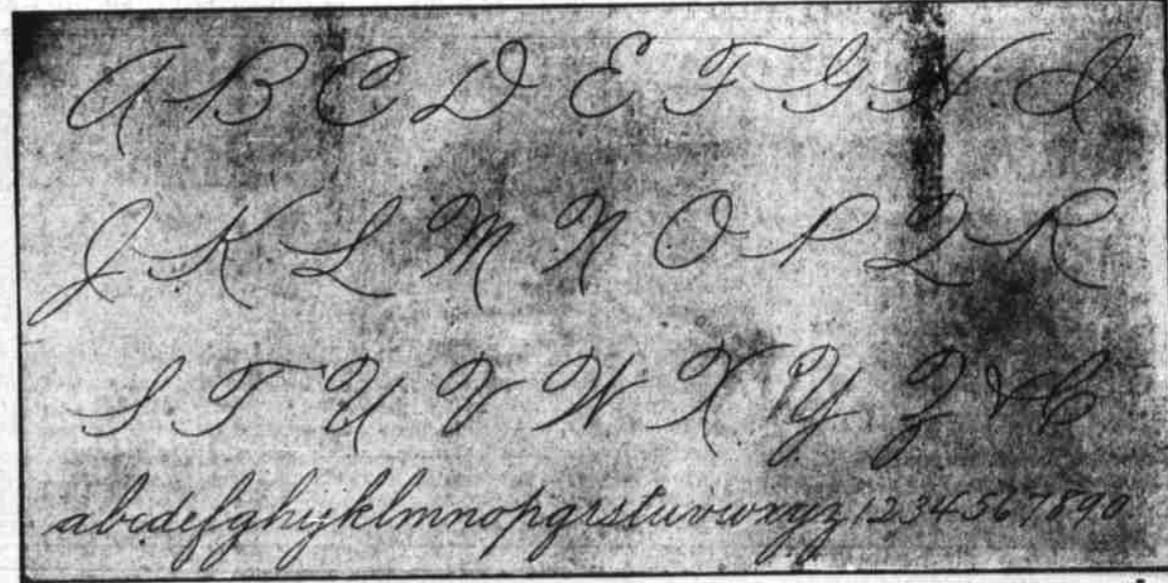 A B C D E F G H I
J K L M N O P Q R
S T U V W X Y Z &c
abcdefghijklmnopqrstuvwxyz 1234567890